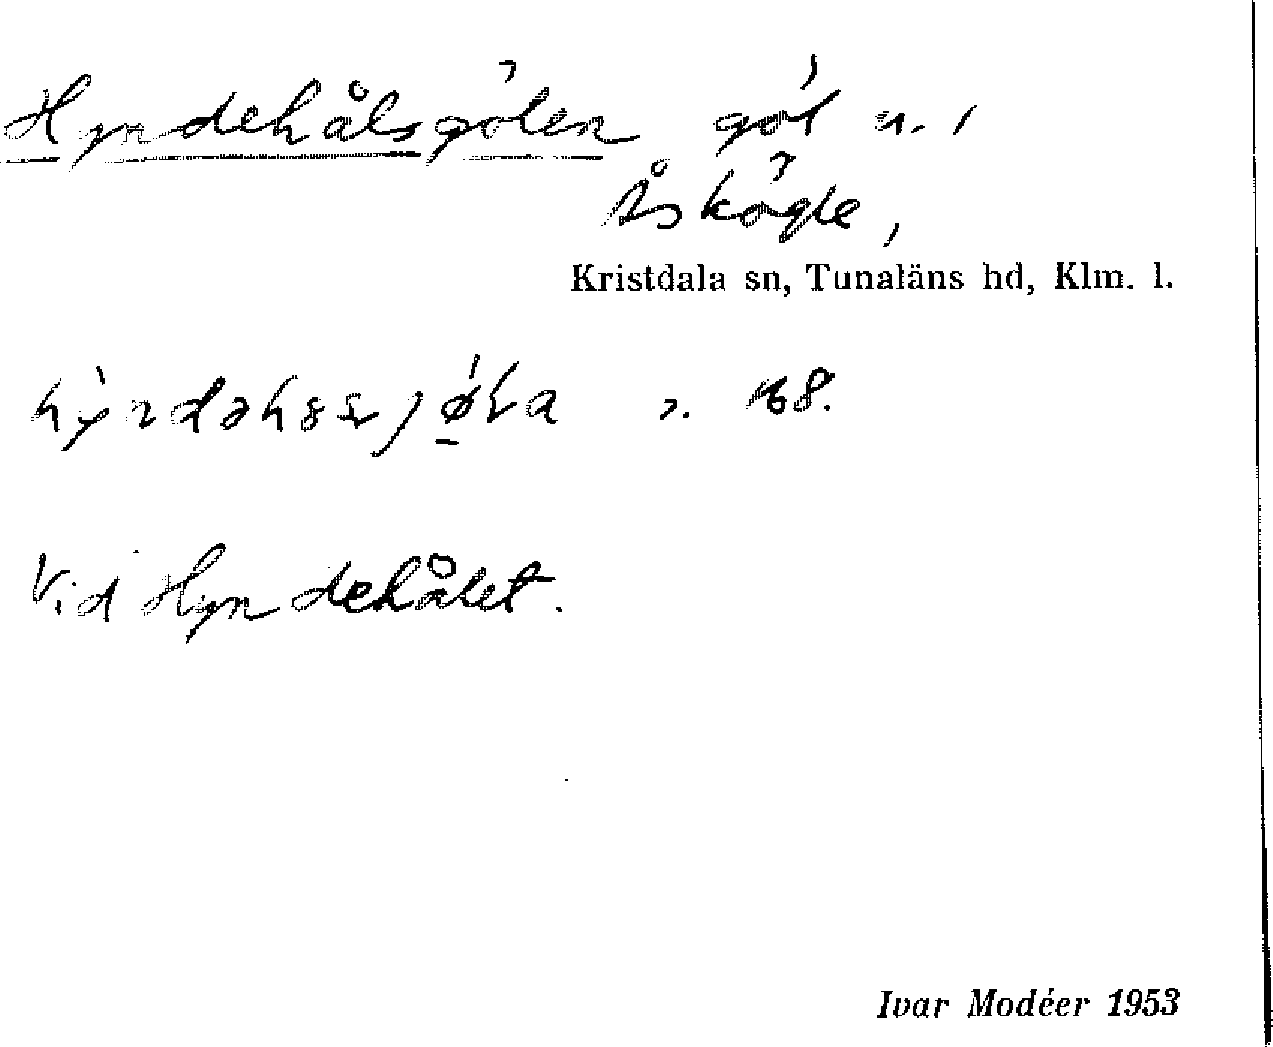 Hyndehålsgölen göl u. i
Åskögle,
Kristdala sn, Tunaläns hd, Klm. l.
Vid Hyndehålet.
Ivar Modéer 1953